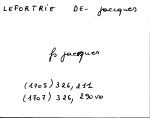 LEFORTRIE DE- Jacques
fs jacques
(1705) 326, 211
(1707) 326, 290 vo